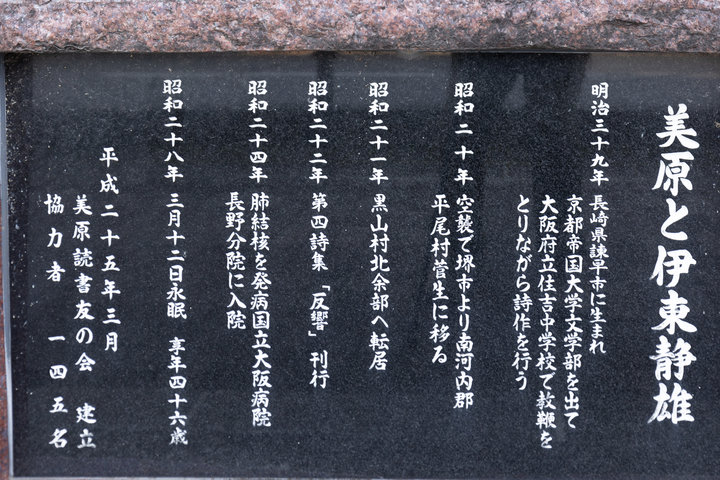 美原と伊東静雄
明治三十九年 長崎県諫早市に生まれ
京都帝国大学文学部を出て
大阪府立住吉中学校で教鞭を
とりながら詩作を行う
昭和二十年 空襲で堺市より南河内郡
平尾村菅生に移る
昭和二十一年 黒山村北余部へ転居
昭和二十二年 第四詩集「反響」刊行
昭和二十四年 肺結核を発病国立大阪病院
長野分院に入院
昭和二十八年 三月十二日永眠 享年四十六歳
平成二十五年三月
美原読書友の会 建立
協力者 一四五名